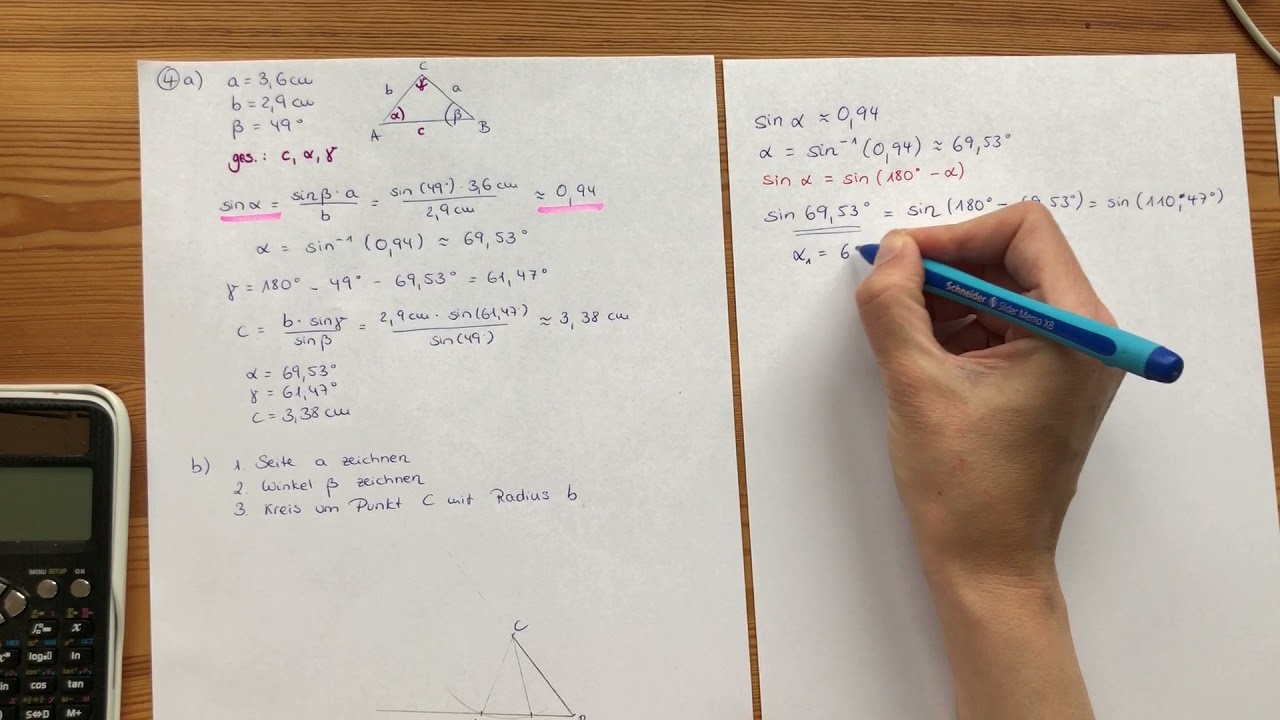 ④ a) a = 3,6 cm
b = 2,9 cm
β = 49°
ges.: c, α, γ
C
b γ a
α) β
A c B
sin α = sin β · a / b = sin (49°) · 3,6 cm / 2,9 cm ≈ 0,94
α = sin⁻¹ (0,94) ≈ 69,53°
γ = 180° - 49° - 69,53° = 61,47°
c = b · sin γ / sin β = 2,9 cm · sin (61,47°) / sin (49°) ≈ 3,38 cm
α = 69,53°
γ = 61,47°
c = 3,38 cm
b) 1. Seite a zeichnen
2. Winkel β zeichnen
3. Kreis um Punkt C mit Radius b
C
B
sin α ≈ 0,94
α = sin⁻¹ (0,94) ≈ 69,53°
sin α = sin (180° - α)
sin 69,53° = sin (180° - 69,53°) = sin (110,47°)
α₁ = 6
Schneider Slider Memo XB
MENU SETUP ON
x
log▯ ln
sin cos tan
S⇔D M+